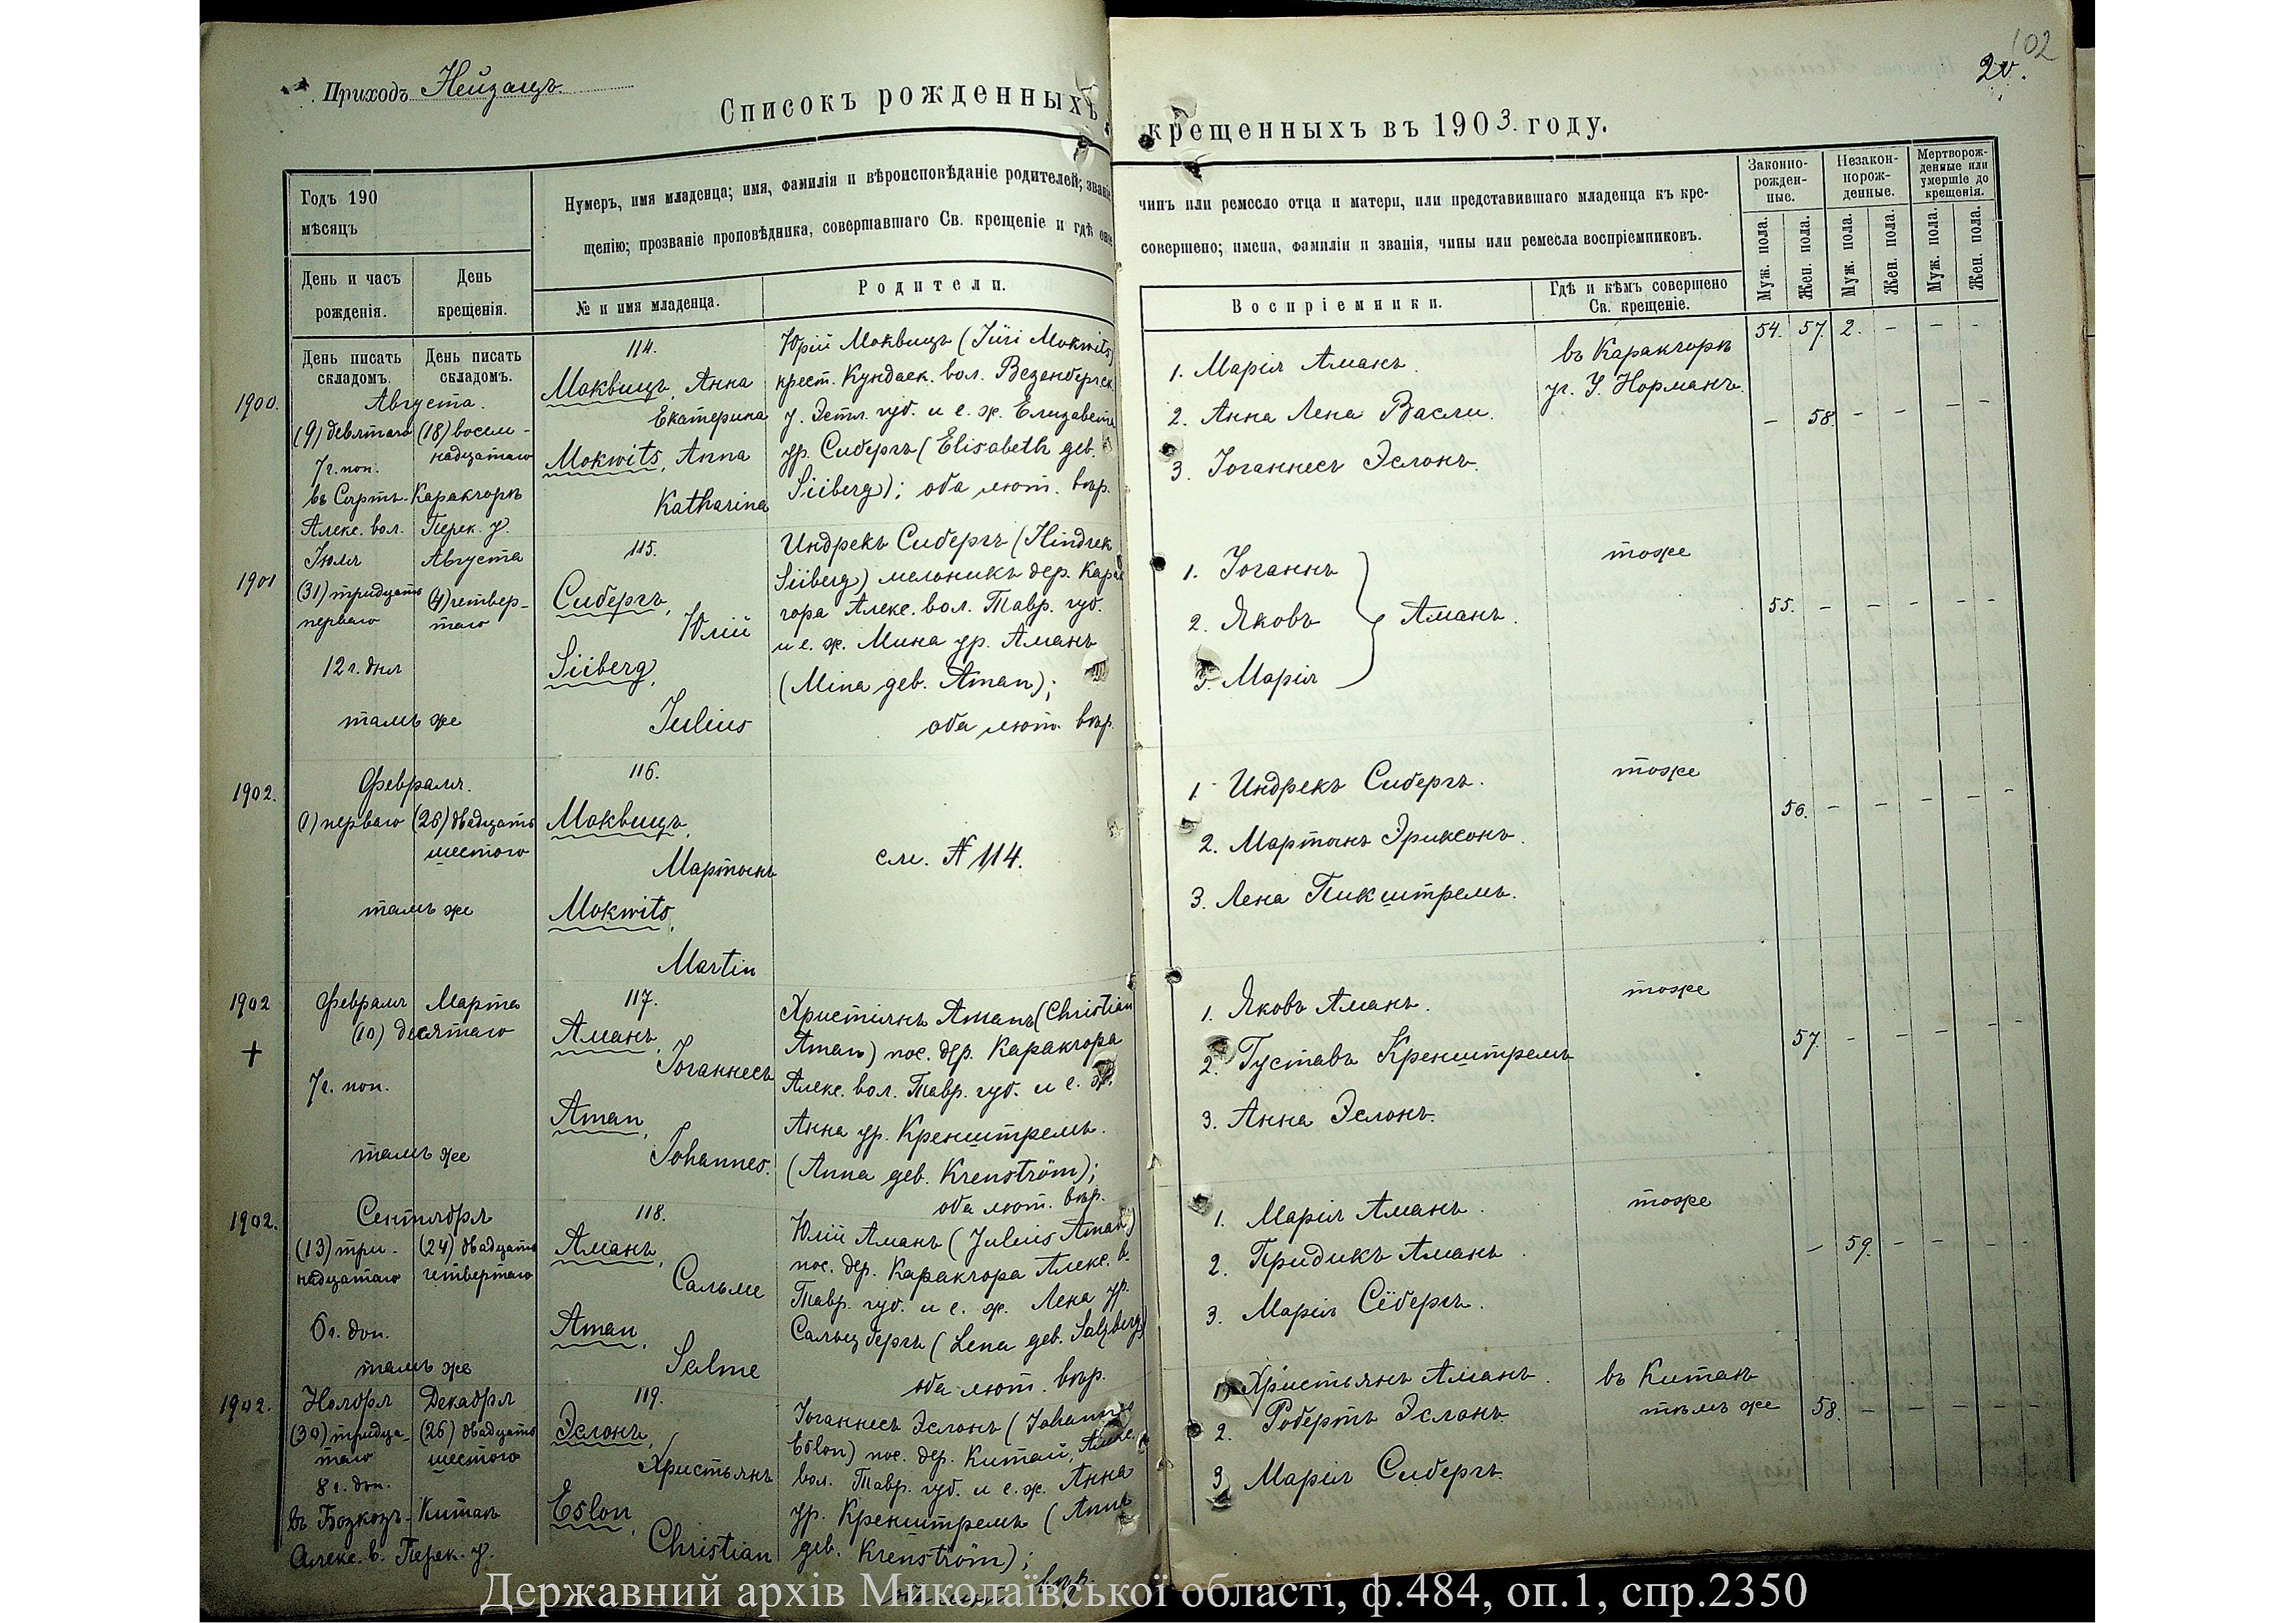 Приходъ Нейзацъ
102
20.
Списокъ рожденныхъ
крещенныхъ въ 1903. году.
Годъ 190
мѣсяцъ
День и часъ
рожденія.
День
крещенія.
Нумеръ, имя младенца; имя, фамилія и вѣроисповѣданіе родителей; званіе
щенію; прозваніе проповѣдника, совершавшаго Св. крещеніе и гдѣ оно
№ и имя младенца.
Родители.
чинъ или ремесло отца и матери, или представившаго младенца къ кре-
совершено; имена, фамиліи и званія, чины или ремесла воспріемниковъ.
Воспріемники.
Гдѣ и кѣмъ совершено
Св. крещеніе.
Законно-
рожден-
ные.
Незакон-
норож-
денные.
Мертворож-
денные или
умершіе до
крещенія.
Муж. пола.
Жен. пола.
Муж. пола.
Жен. пола.
Муж. пола.
Жен. пола.
День писать
складомъ.
День писать
складомъ.
54. 57. 2. - - -
1900.
Августа.
(9) девятаго
7 ч. поп.
въ Сартъ-Каракчорѣ
Алекс. вол. Перек. у.
(18) восем-
надцатаго
114.
Моквицъ, Анна
Екатерина
Mokwits, Anna
Katharina
Юрій Моквицъ (Jüri Mokwits)
крест. Кундаск. вол. Везенбергск.
у. Эстл. губ. и е. ж. Елизавета
ур. Сибергъ (Elisabeth geb.
Siiberg); оба лют. вѣр.
1. Марія Аманъ.
2. Анна Лена Васли.
3. Іоганнесъ Эслонъ.
въ Каракчорѣ
уч. У. Норманъ.
- 58. - - - -
1901
Іюля
(31) тридцать
перваго
12 ч. дня
Августа
(4) четвер-
таго
тамъ же
115.
Сибергъ,
Юлій
Siiberg,
Julius
Индрекъ Сибергъ (Hindrek
Siiberg) мельникъ дер. Карак
чора Алекс. вол. Тавр. губ.
и е. ж. Мина ур. Аманъ
(Mina geb. Aman);
оба лют. вѣр.
1. Іоганнъ
2. Яковъ
3. Марія
Аманъ.
тоже
55. - - - - -
1902.
Февраля.
(1) перваго
(26) двадцать
шестого
тамъ же
116.
Моквицъ,
Мартынъ
Mokwits,
Martin
см. № 114.
1. Индрекъ Сибергъ.
2. Мартынъ Эриксонъ.
3. Лена Пикштремъ.
тоже
56. - - - - -
1902
+
Февраля
Марта
(10) десятаго
7 ч. поп.
тамъ же
117.
Аманъ,
Іоганнесъ
Aman,
Johannes.
Христіянъ Аманъ (Christian
Aman) пос. дер. Каракчора
Алекс. вол. Тавр. губ. и е. ж.
Анна ур. Кренштремъ.
(Anna geb. Krenström);
оба лют. вѣр.
1. Яковъ Аманъ.
2. Густавъ Кренштремъ
3. Анна Эслонъ.
тоже
57. - - - - -
1902.
Сентября
(13) три-
надцатаго
6 ч. доп.
(24) двадцать
четвертаго
тамъ же
118.
Аманъ,
Сальме
Aman,
Salme
Юлій Аманъ (Julius Aman)
пос. дер. Каракчора Алекс. в.
Тавр. губ. и е. ж. Лена ур.
Сальцбергъ (Lena geb. Salzberg)
оба лют. вѣр.
1. Марія Аманъ.
2. Придикъ Аманъ.
3. Марія Сёбергъ.
тоже
- 59. - - - -
1902.
Ноября
(30) тридца-
таго
8 ч. доп.
Декабря
(26) двадцать
шестого
въ Бозкозъ-Китаѣ
Алекс. в. Перек. у.
119.
Эслонъ,
Христьянъ
Eslon,
Christian
Іоганнесъ Эслонъ (Johannes
Eslon) пос. дер. Китай, Алекс.
вол. Тавр. губ. и е. ж. Анна
ур. Кренштремъ (Anna
geb. Krenström);
вѣр.
1. Христьянъ Аманъ.
2. Робертъ Эслонъ.
3. Марія Сибергъ.
въ Китаѣ
тѣмъ же
58. - - - - -
Державний архів Миколаївської області, ф.484, оп.1, спр.2350